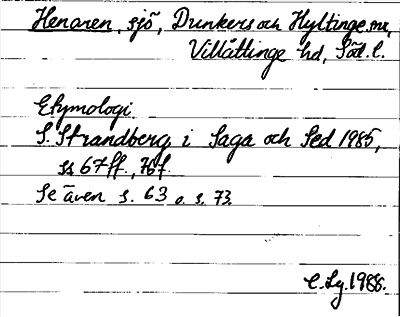 Henaren, sjö, Dunkers och Hyltinge snr,
Villåttinge hd, Söd. l.
Etymologi
S. Strandberg i Saga och Sed 1985,
ss 67ff., 76f.
Se även s. 63 o. s. 73.
C. Lg. 1988.